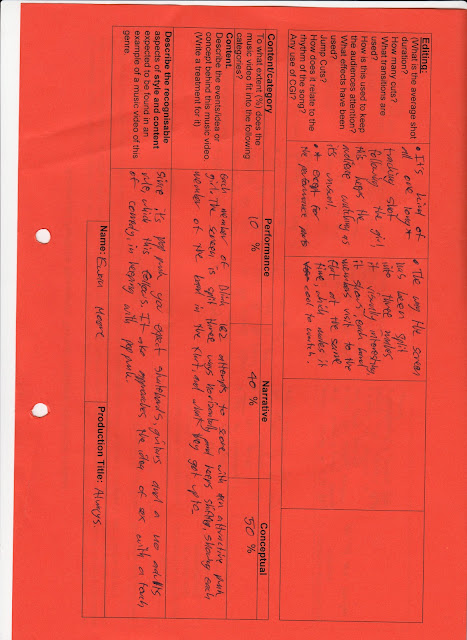 Editing:
(What is the average shot
duration?
How many cuts?
What transitions are
used?
How is this used to keep
the audiences attention?
What effects have been
used?
Jump Cuts?
How does it relate to the
rhythm of the song?
Any use of CGI?
• It's kind of
all one long *
tracking shot
following the girl
this keeps the
audience watching as
it's unusual.
• * except for
the performance parts
• The way the screen
has been split
into three makes
it visually interesting,
it shows each band
members visit to the
flat at the same
time, which makes it
cool to watch.
Content/category
To what extent (%) does the
music video fit into the following
categories?
Performance
10 %
Narrative
40 %
Conceptual
50 %
Content.
Describe the events/idea or
concept behind this music video
(Write a treatment for it)
Each member of Blink 182 attempts to score with an attractive punk
girl. The screen is split three ways horizontally and keeps shifting, showing each
member of the band in the flat, and what they get up to.
Describe the recognisable
aspects of style and content
expected to be found in an
example of a music video of this
genre.
Since its pop punk, you expect skateboards, guitars and a no adults
vibe, which this follows. It also approaches the idea of sex with a touch
of comedy, in keeping with pop punk.
Name: Ewan Moore
Production Title: Always.